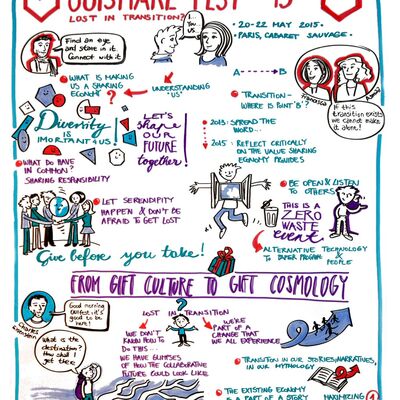 OUISHARE FEST '15
LOST IN TRANSITION?
I...
You
US
20-22 MAY 2015.
PARIS, CABARET SAUVAGE.
Find an eye
and stare in it.
Connect with it
WHAT IS MAKING
US A SHARING
ECONOMY?
UNDERSTANDING
"US"
A
B
TRANSITION-
WHERE IS POINT 'B'?
Francesca
If this
transition exists
we cannot make
it alone!
Diversity
IS
IMPORTANT 4 US!
LET'S
shape
OUR
FUTURE
together!
2015: SPREAD THE
WORD...
2015: REFLECT CRITICALLY
ON THE VALUE SHARING
ECONOMY PROVIDES
WHAT DO HAVE
IN COMMON?
SHARING RESPONSIBILITY
LET SERENDIPITY
HAPPEN & DON'T BE
AFRAID TO GET LOST
BE OPEN & LISTEN
TO OTHERS
THIS IS A
ZERO
WASTE
event
Give before you take!
ALTERNATIVE TECHNOLOGY
&
PEOPLE
FROM GIFT CULTURE TO GIFT COSMOLOGY
Good morning
it's
good to be
here!
Charles
Eisenstein
LOST IN TRANSITION
?
What is the
destination?
How shall I
get there
WE DON'T
KNOW HOW TO
DO THIS...
WE HAVE GLIMPSES
OF HOW THE COLLABORATIVE
FUTURE COULD LOOK LIKE.
WE'RE
PART OF A
CHANGE THAT
WE ALL EXPERIENCE
TRANSITION IN OUR STORIES, NARRATIVES,
IN OUR MYTHOLOGY
THE EXISTING ECONOMY
IS A PART OF A STORY
MAXIMIZING
1